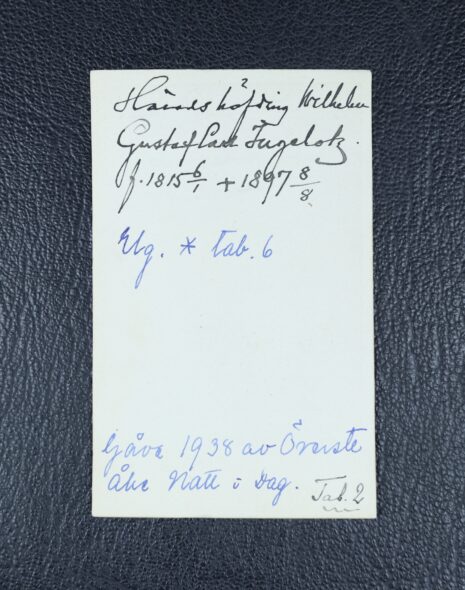 Häradshöfding Wilhelm
Gustaf Carl Ingelotz.
f. 1815 6/1 + 1897 8/8
Elg. * tab. 6
Gåva 1938 av Överste
Åke Natt o Dag.
Tab. 2